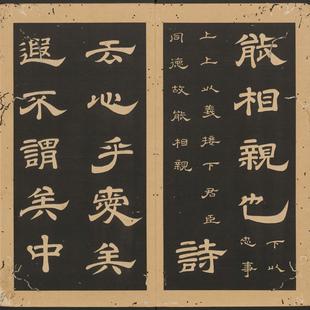 能相親也
下以
忠事
上上以義接下君臣
同德故能相親
詩
云心乎愛矣
遐不謂矣中